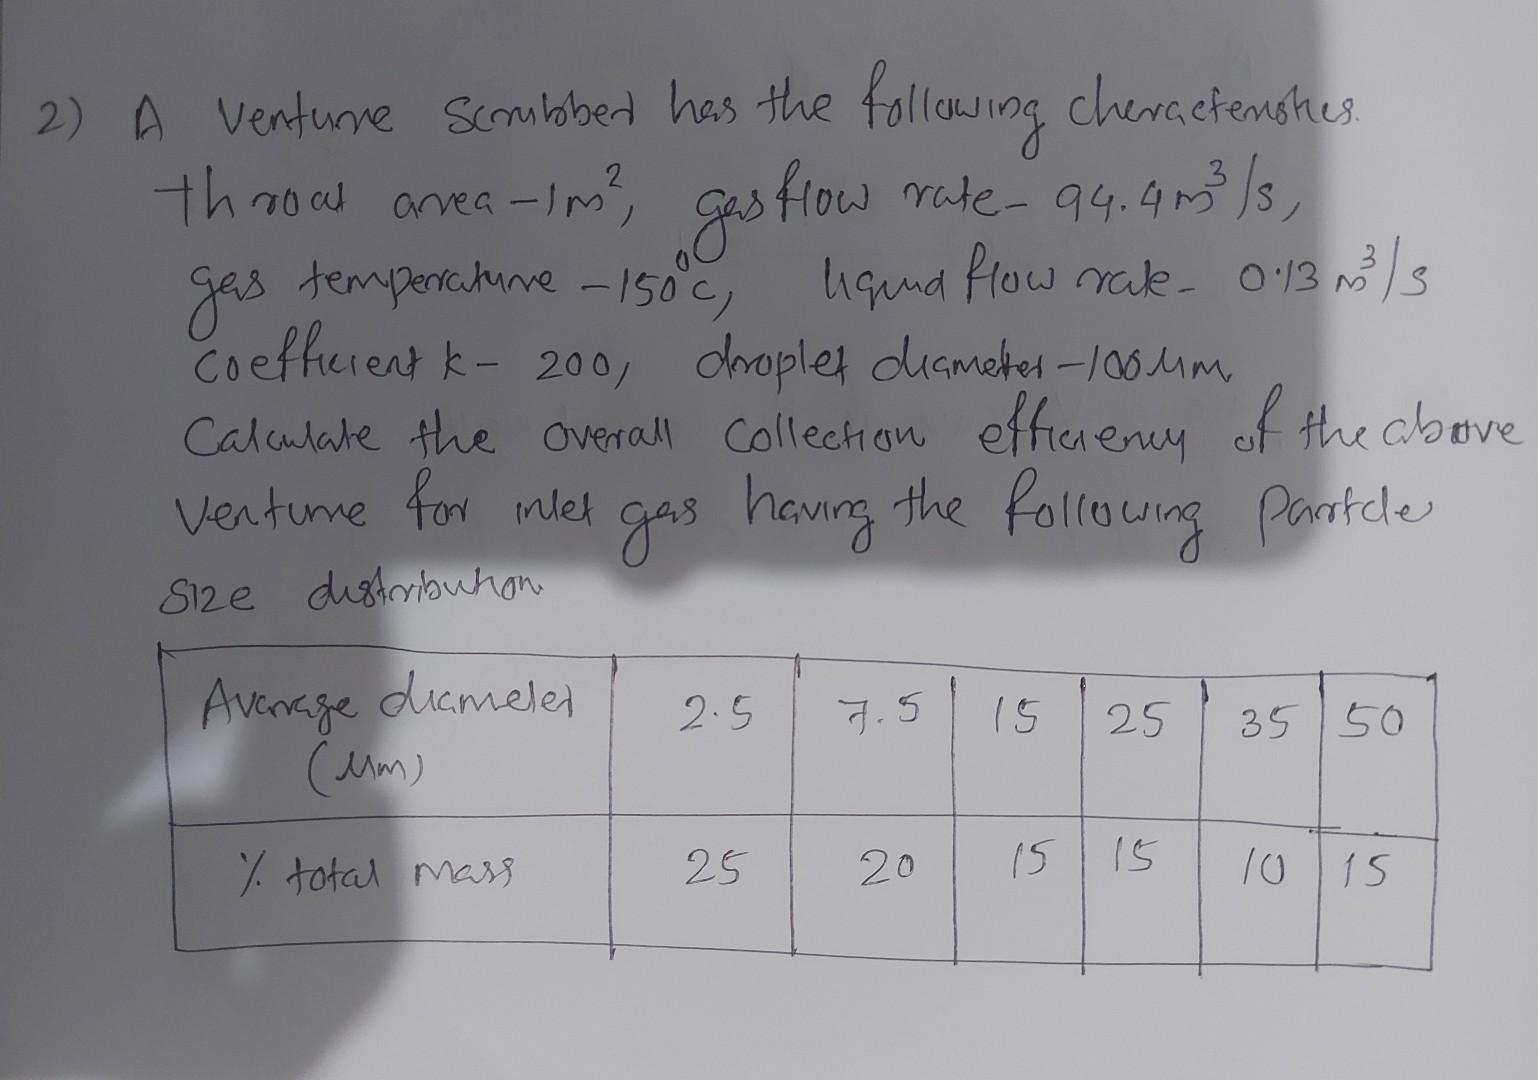 2) A Venturie Scrubber has the following cheracteristics.
throat area - 1m², gas flow rate - 94.4 m³/s,
gas temperature - 150°C, liquid flow rate - 0.13 m³/s
Coefficient k - 200, droplet diameter - 100 μm
Calculate the overall collection efficiency of the above
Venturie for inlet gas having the following Particle
Size distribution
Average diameter (μm) 2.5 7.5 15 25 35 50
% total mass 25 20 15 15 10 15